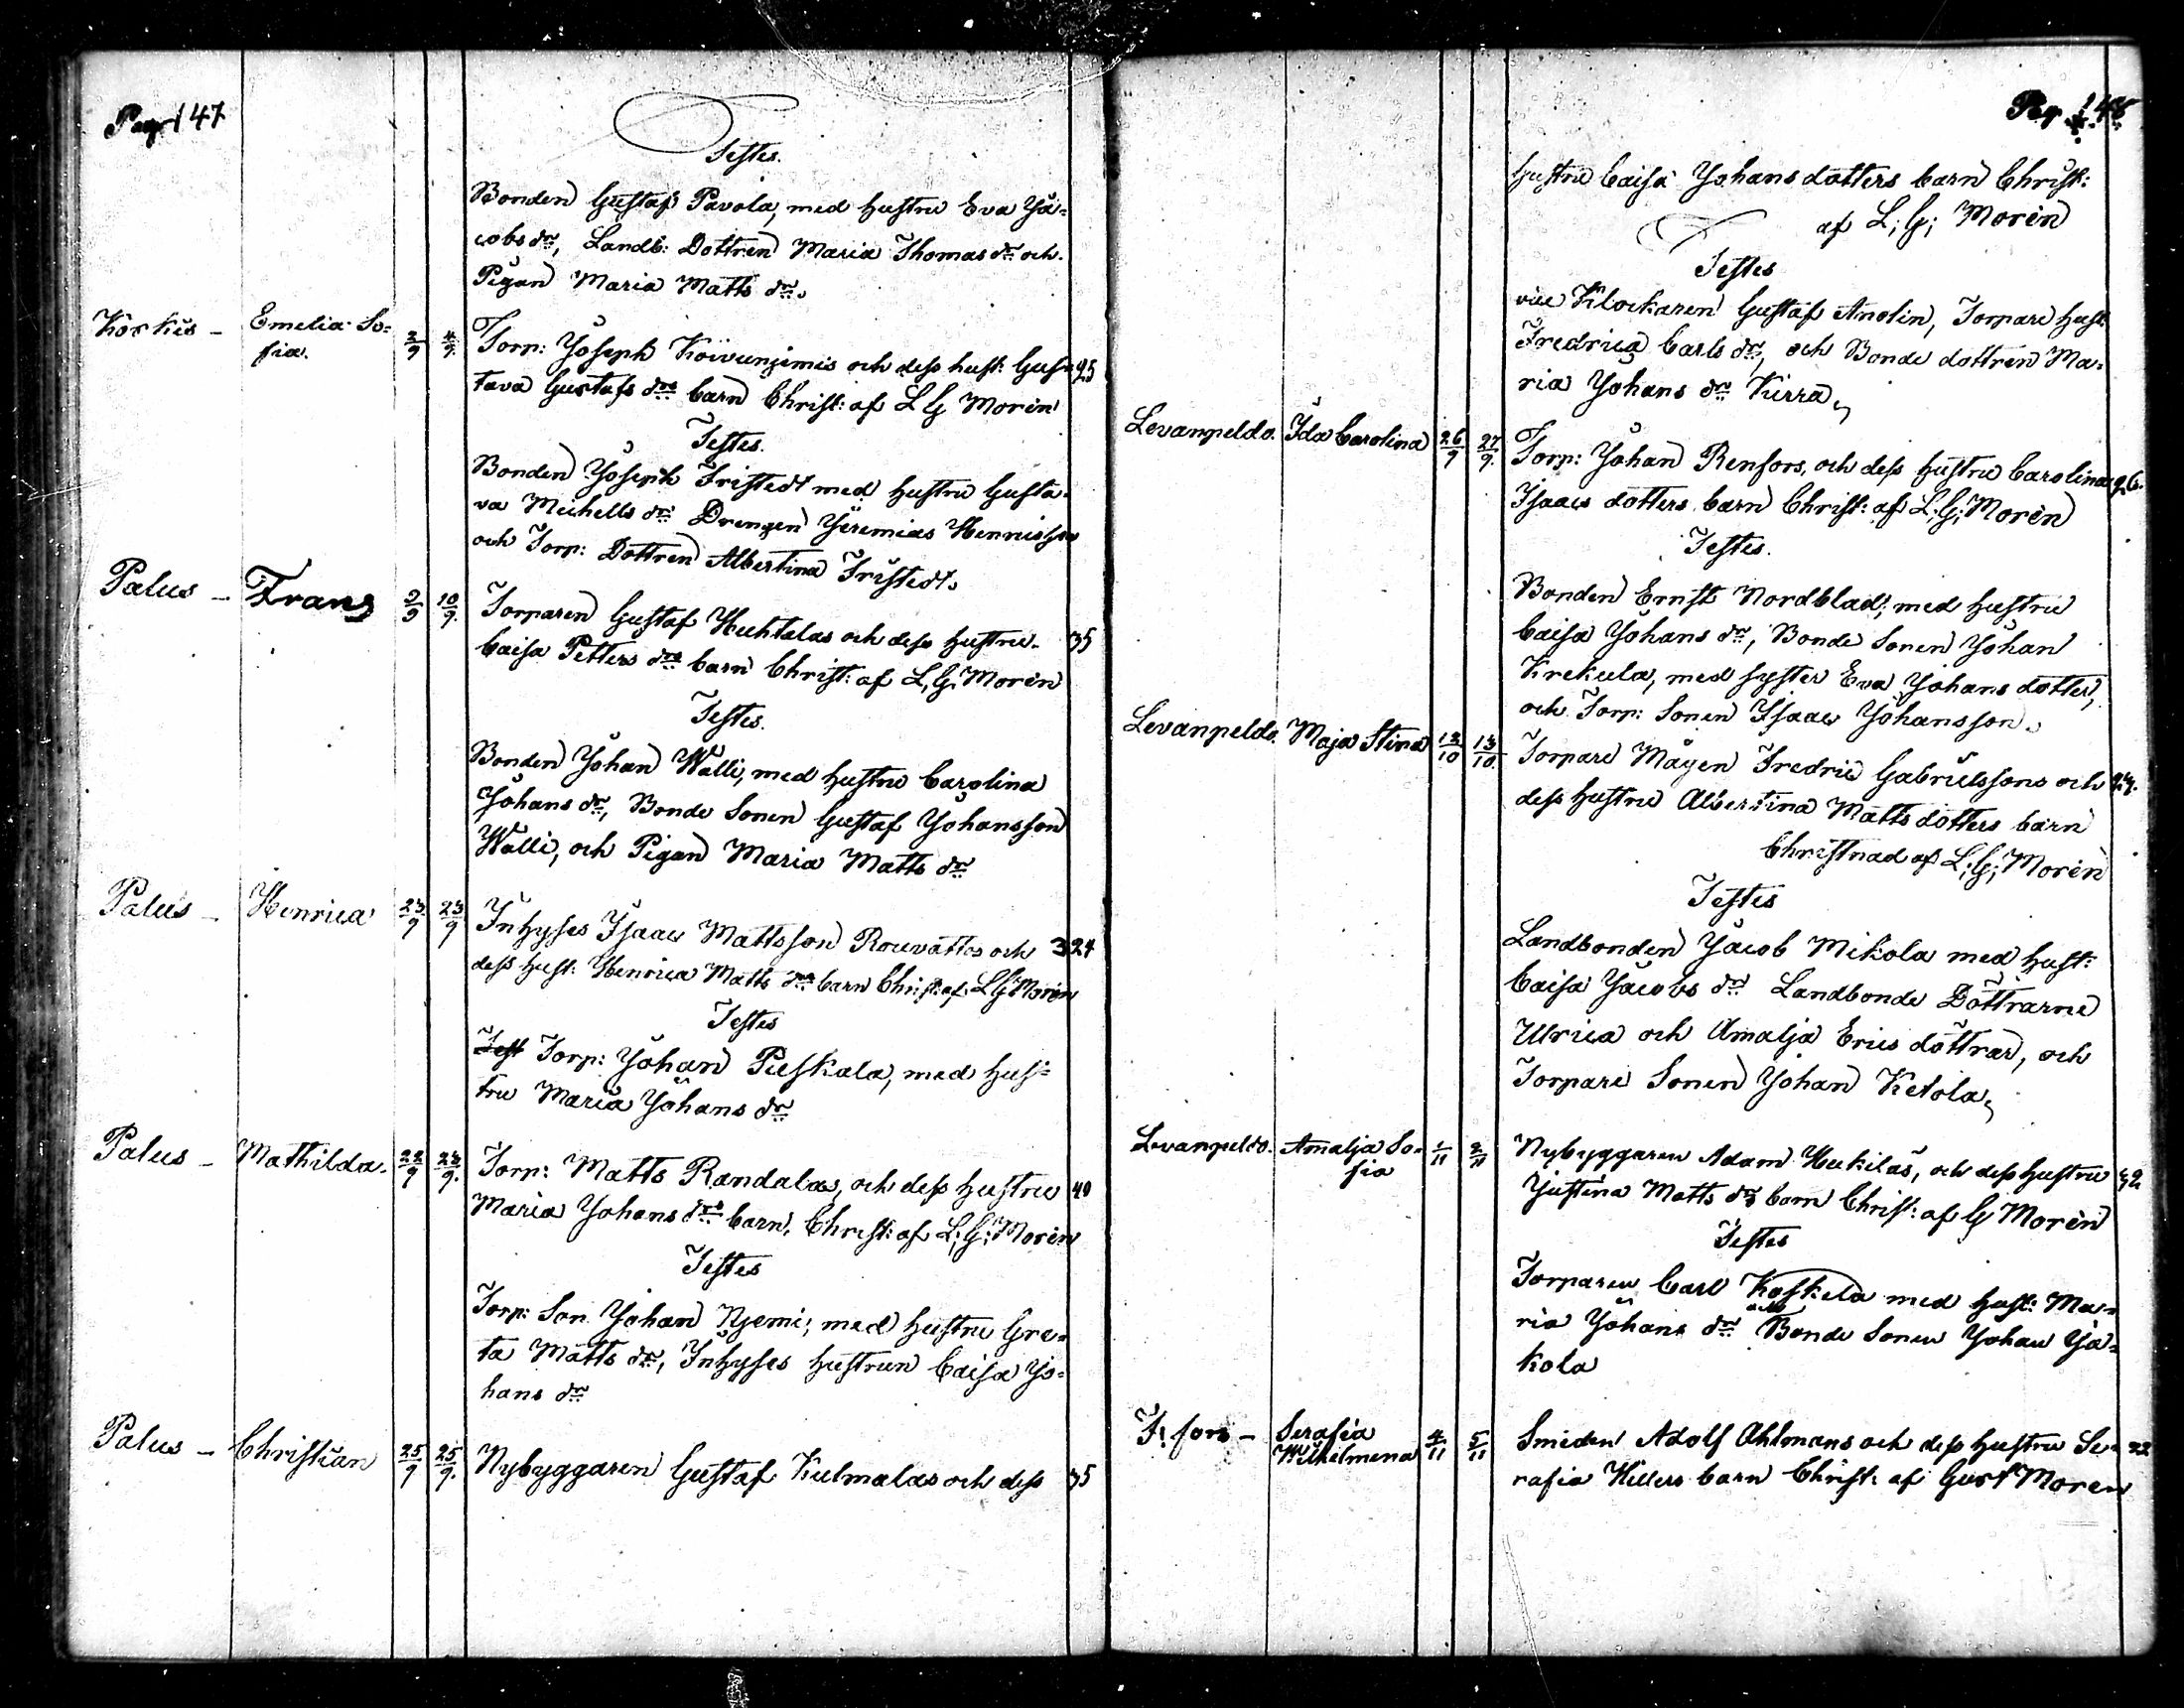 Pag. 147
Testes.
Bonden Gustaf Pavola, med hustru Eva Ja=
cobs dr, Landb: Dottren Maria Thomas dr och
Pigan Maria Matts dr.
Korkis - Emelia So= 3/9 4/9. Torp: Joseph Koivunjemis och dess hust: Gus= 25
fia. tava Gustafs drs barn Christ: af L G Morén
Testes.
Bonden Joseph Fristedt med hustru Gusta=
va Michells dr Drengen Jeremias Hennisson
och Torp: Dottren Albertina Fristedt.
Palus - Frans 9/9 10/9. Torparen Gustaf Huhtalas och dess hustru 35
Caisa Petters drs barn Christ: af L. G. Morén
Testes.
Bonden Johan Walli, med hustru Carolina
Johans dr, Bonde Sonen Gustaf Johansson
Walli, och Pigan Maria Matts dr
Palus - Henrica 23/9 23/9 Inhyses Isaac Mattsson Rouvattos och 24
dess hust: Henrica Matts drs barn Christ: af L G Morén
Testes
Test Torp: Johan Puskala, med hus=
tru Maria Johans dr
Palus - Mathilda. 22/9 23/9. Torp: Matts Randalas, och dess hustru 40
Maria Johans drs barn, Christ: af L; G; Morén
Testes
Torp: Son Johan Njemi; med hustru Gre=
ta Matts dr, Inhyses hustrun Caisa Jo=
hans dr
Palus - Christian 25/9 25/9. Nybyggaren Gustaf Kulmalas och dess 35
Pag. 148
hustru Caisa Johans dotters barn Christ:
af L; G; Morén
Testes
vice Klockaren Gustaf Anolin, Torpare hust:
Fredrica Carls dr, och Bonde dottren Ma=
ria Johans dr Kirra,
Levanpeldo. Ida Carolina 26/9 27/9. Torp: Johan Renfors, och dess hustru Carolina 26.
Isaacs dotters barn Christ: af L; G; Morén
Testes.
Bonden Ernst Nordblad; med hustru
Caisa Johans dr, Bonde Sonen Johan
Krekula, med syster Eva Johans dotter,
och Torp: Sonen Isaac Johansson.
Levanpeldo. Maja Stina 13/10 13/10. Torpare Mågen Fredric Gabrielssons och
dess hustru Albertina Matts dotters barn
Christnad af L; G; Morén
Testes
Landbonden Jacob Mikola med hust:
Caisa Jacobs dr Landbonde Döttrarne
Ulrica och Amalja Erics döttrar, och
Torpare Sonen Johan Ketola,
Levanpeldo. Amalja So= 1/11 2/11 Nybyggaren Adam Heikilas, och dess hustru
fia Justina Matts drs barn Christ: af G Morén
Testes
Torparen Carl Koskela med hust: Ma=
ria Johans dr och Bonde Sonen Johan Ja=
kola
Serafia 4/11 5/11 Smeden Adolf Ahlmans och dess hustru Se= 22
Wilhelmena rafia Hillers barn Christ: af Gust Morén